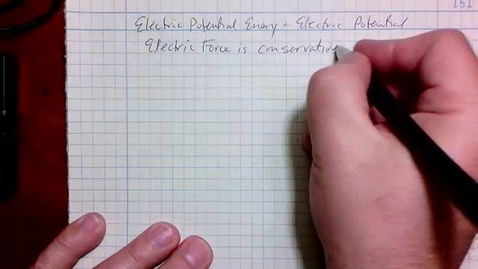 151
Electric Potential Energy + Electric Potential
Electric Force is conservativ